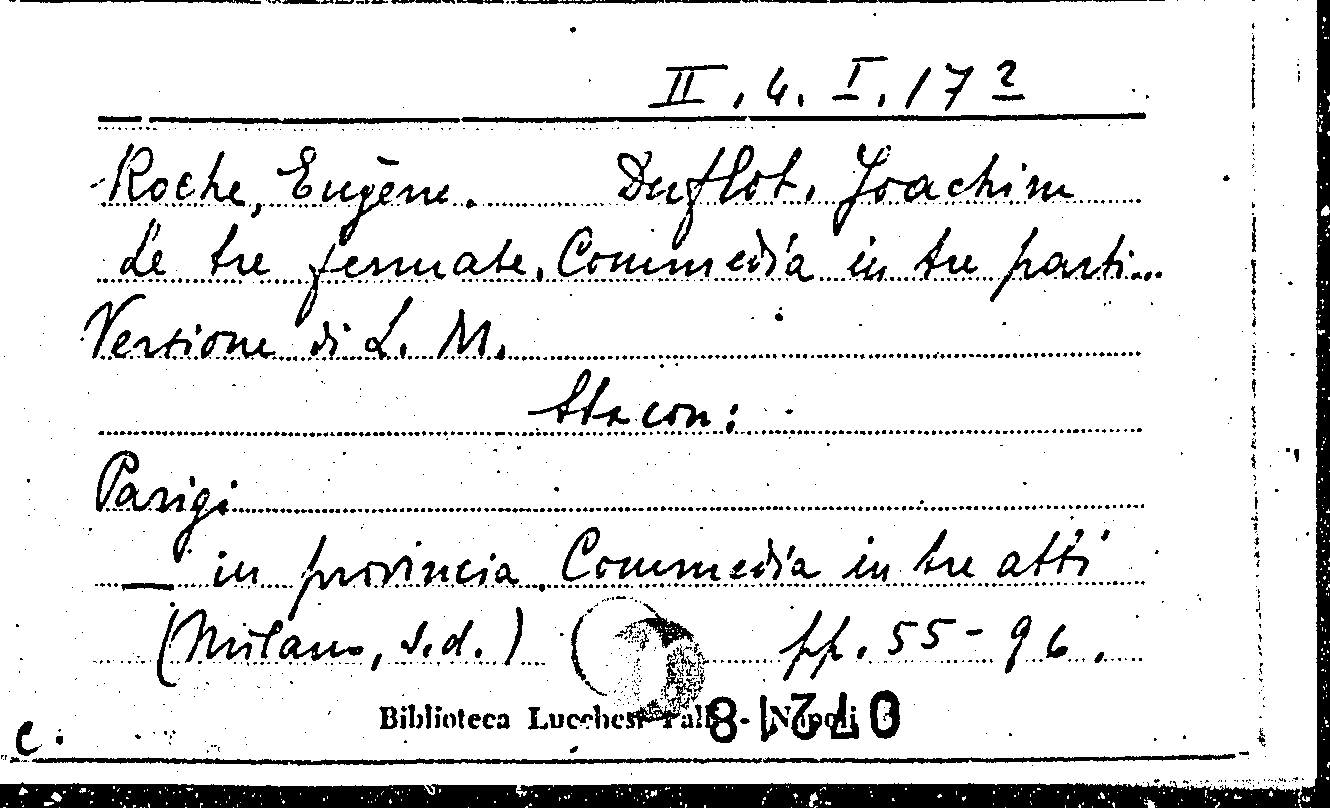 II. 4. I. 17 2
Roche, Eugène. Duflot, Joachim
Le tre fermate. Commedia in tre parti...
Versione di L. M.
Sta con:
Parigi
— in provincia. Commedia in tre atti
(Milano, s.d.) pp. 55-96.
Biblioteca Lucchesi Palli - Napoli
c.